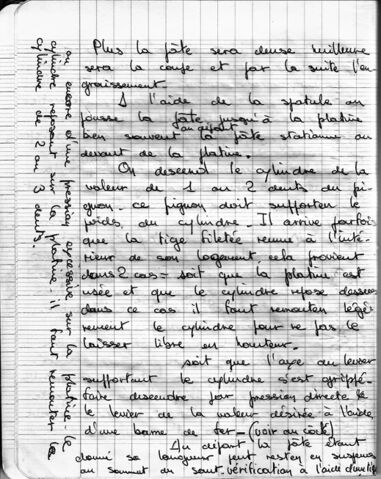 Plus la pâte sera dense meilleure
sera la coupe et par la suite l'en
graissement.
A l'aide de la spatule on
pousse la pâte jusqu'à la platine
au départ
bien souvent la pâte stationne au
devant de la platine.
On descend le cylindre de la
valeur de 1 ou 2 dents du pi-
gnon. ce pignon doit supporter le
poids, du cylindre. Il arrive parfois
que la tige filetée remue à l'inté-
rieur de son logement, cela provient
dans 2 cas = soit que la platine est
usée et que le cylindre repose dessus
dans ce cas il faut remonter légè
rement le cylindre pour ne pas le
laisser libre en hauteur.
soit que l'axe du levier
supportant le cylindre s'est grippé.
faire descendre par pression directe le
le levier de la valeur désirée à l'aide
d'une barre de fer - (voir au côté)
Au départ la pâte étant
donné sa longueur peut rester en suspens
au sommet du saut. vérification à l'aide d'une
ou encore d'une pression excessive sur la platine le
cylindre reposant sur la platine. il faut remonter le
cylindre de 2 ou 3 dents.